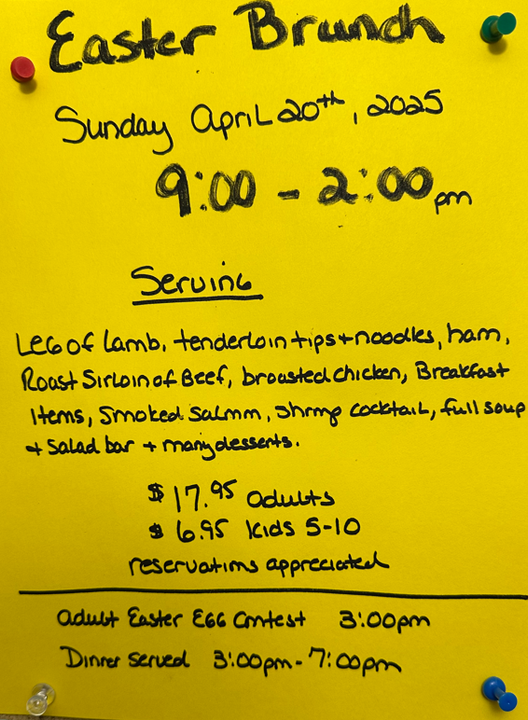 Easter Brunch
Sunday April 20th, 2025
9:00 - 2:00pm
Serving
Leg of Lamb, tenderloin tips + noodles, ham,
Roast Sirloin of Beef, broasted chicken, Breakfast
Items, Smoked Salmon, Shrimp cocktail, full soup
+ Salad bar + many desserts.
$17.95 adults
$6.95 kids 5-10
reservations appreciated
Adult Easter Egg Contest 3:00pm
Dinner Served 3:00pm - 7:00pm